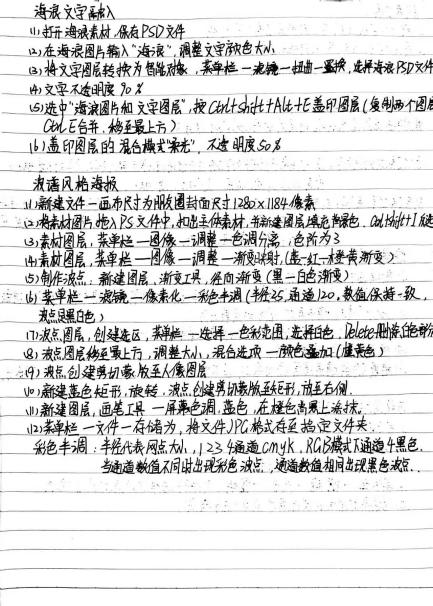 海浪文字融入
(1)打开海浪素材,保存PSD文件
(2)在海浪图片输入"海浪",调整文字颜色大小
(3)将文字图层转换为智能对象,菜单栏一滤镜一扭曲一置换,选择海浪PSD文件
(4)文字不透明度90%
(5)选中"海浪图片和文字图层",按Ctrl+shift+Alt+E盖印图层(复制两个图层
Ctrl E合并,移至最上方)
(6)盖印图层的混合模式"柔光",不透明度50%
风格海报
(1)新建文件一画布尺寸为朋友圈封面尺寸1280×1184像素
(2)将素材图片拖入PS文件中,扣出主体素材,并新建图层填充背景色,Ctrl shift I反选
(3)素材图层,菜单栏一图像一调整一色调分离,色阶为3
(4)素材图层,菜单栏一图像一调整一渐变映射(蓝-红-橙黄渐变)
(5)制作波点:新建图层,渐变工具,径向渐变(黑一白色渐变)
(6)菜单栏一滤镜一像素化一彩色半调(半径25,通道120,数值保持一致,
波点黑白色)
(7)波点图层,创建选区,菜单栏一选择一色彩范围,选择白色,Delete删除白色部分
(8)波点图层移至最上方,调整大小,混合选项一颜色叠加(黄色)
(9)波点创建剪切蒙版至人像图层
(10)新建蓝色矩形,旋转,波点创建剪切蒙版至矩形,放至右侧.
(11)新建图层,画笔工具一屏幕色调,蓝色,在橙色背景上涂抹.
(12)菜单栏一文件一存储为,将文件JPG格式存至指定文件夹.
彩色半调:半径代表网点大小,1 2 3 4通道cmyk,RGB模式下通道4黑色.
当通道数值不同时出现彩色波点,通道数值相同出现黑色波点.